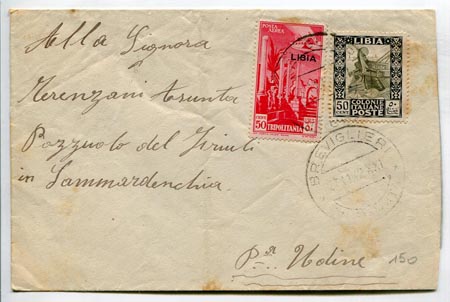 Alla Signora
Terenzani Assunta
Pozzuolo del Friuli
in Sammardenchia
Pr Udine
150
POSTA AEREA
LIBIA
50
TRIPOLITANIA
LIBIA
50
COLONIE ITALIANE
POSTE
BREVIGLIERI